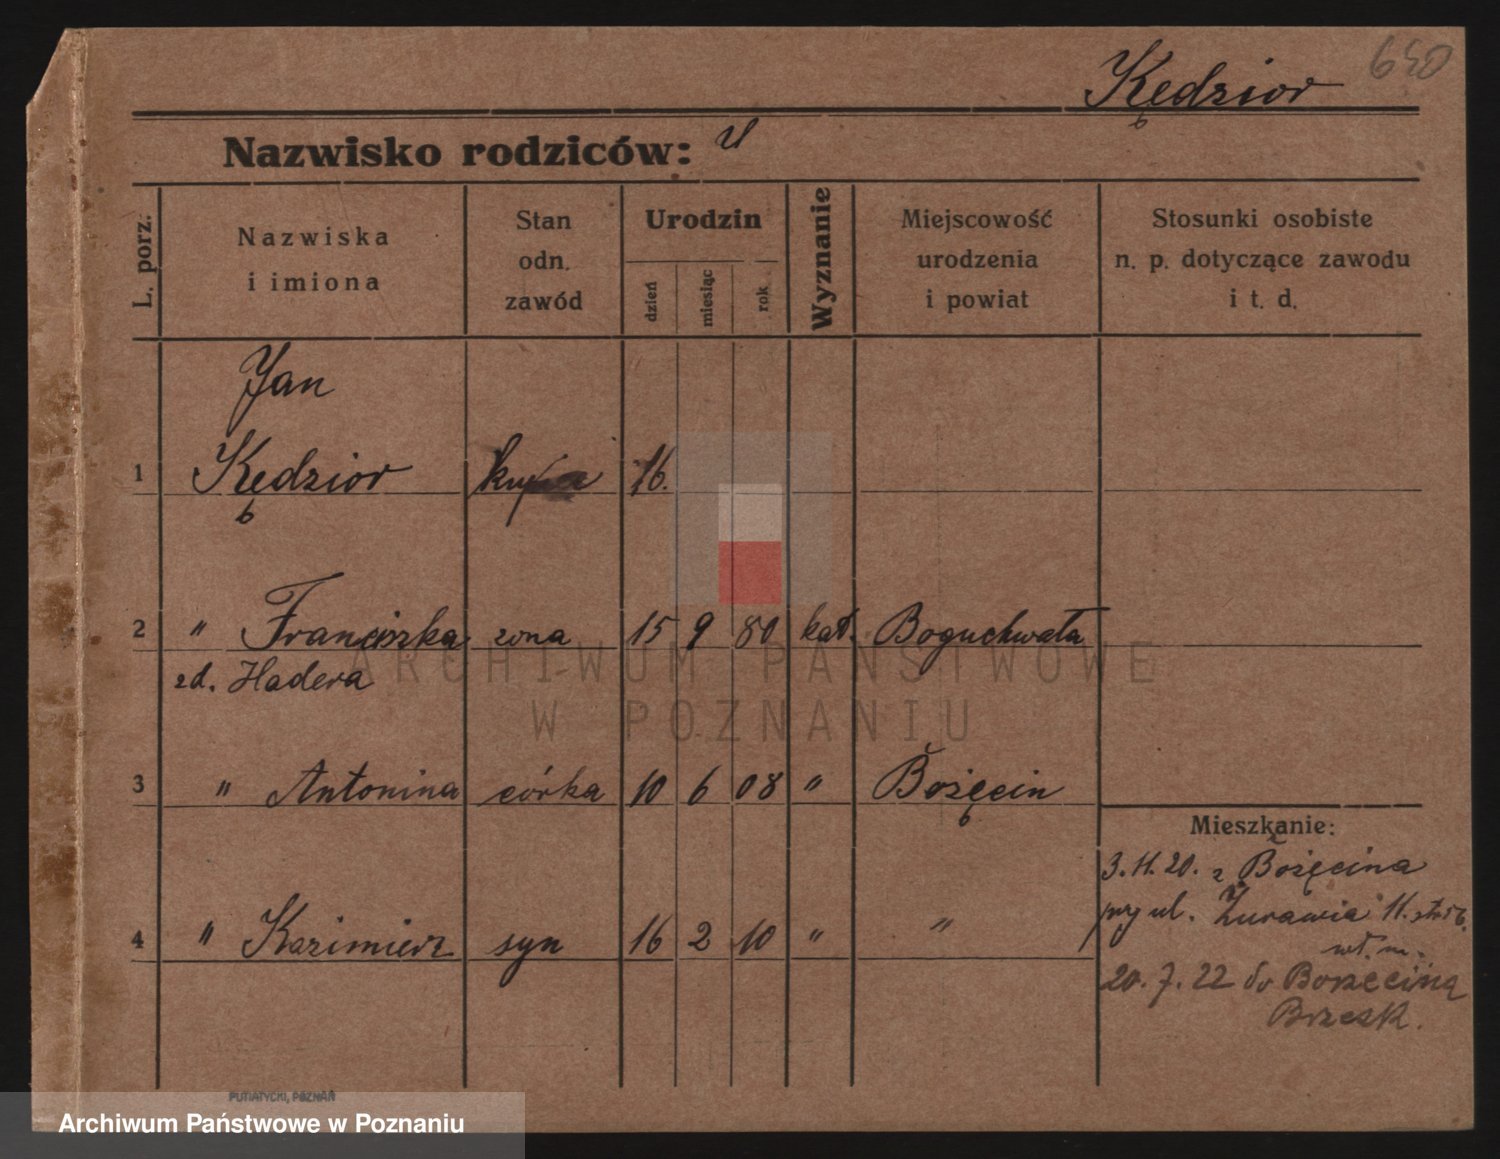 640
Kędzior
Nazwisko rodziców:
L. porz.
Nazwiska
i imiona
Stan
odn.
zawód
Urodzin
dzień
miesiąc
rok
Wyznanie
Miejscowość
urodzenia
i powiat
Stosunki osobiste
n. p. dotyczące zawodu
i t. d.
Jan
1 Kędzior 16.
2 " Franciszka żona 15 9 80 kat. Boguchwała
zd. Hadera
3 " Antonina córka 10 6 08 " Bożęcin
Mieszkanie:
3.11.20. z Bożęcina
przy ul. Żurawia 11.
4 " Kazimierz syn 16 2 10 " "
wł. m.
20.7.22 do Borzęcina
Brzesk.
PUTIATYCKI, POZNAŃ
ARCHIWUM PAŃSTWOWE
W POZNANIU
Archiwum Państwowe w Poznaniu